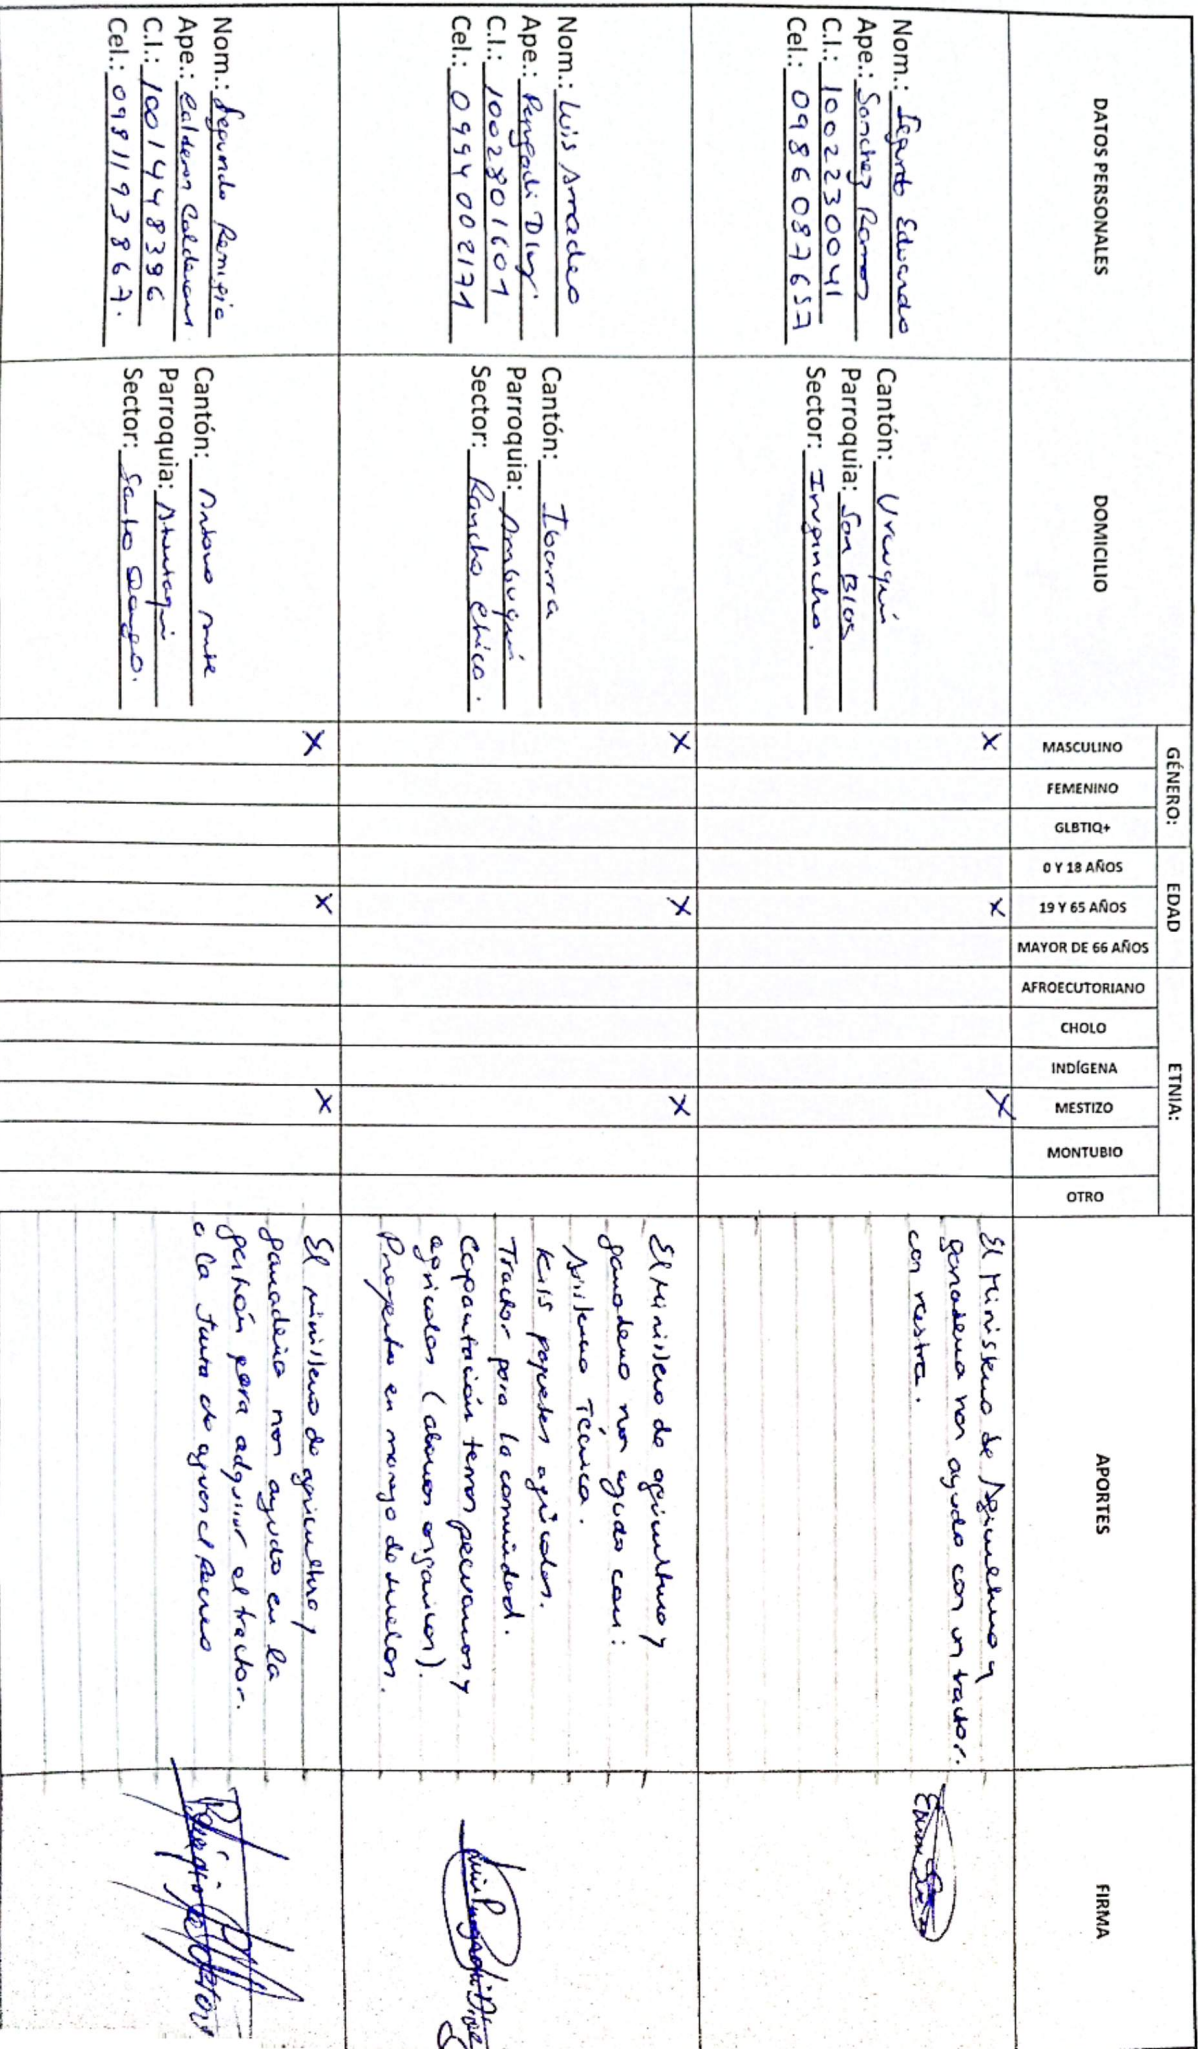 DATOS PERSONALES
DOMICILIO
GÉNERO:
EDAD
ETNIA:
APORTES
FIRMA
MASCULINO
FEMENINO
GLBTIQ+
0 Y 18 AÑOS
19 Y 65 AÑOS
MAYOR DE 66 AÑOS
AFROECUTORIANO
CHOLO
INDÍGENA
MESTIZO
MONTUBIO
OTRO
Nom.: Segundo Eduardo
Ape.: Sanchez Ramos
C.I.: 1002230041
Cel.: 0986087657
Cantón: Urcuquí
Parroquia: San Blas
Sector: Iruguincho.
X
X
X
El Ministerio de Agricultura y
ganaderia nos ayudo con un tractor.
con rastra.
Nom.: Luis Amadeo
Ape.: Pupiales Diaz
C.I.: 1002801601
Cel.: 0994002171
Cantón: Ibarra
Parroquia: Ambuquí
Sector: Rancho Chico.
X
X
X
El Ministerio de agricultura y
ganaderia nos ayuda con:
Asistencia Técnica.
Kits paquetes agricolas.
Tractor para la comunidad.
Capacitación temas pecuarios y
agricolas (abonos organicos).
Proyectos en manejo de suelos.
Nom.: Segundo Remigio
Ape.: Calderon Calderon
C.I.: 1001448396
Cel.: 0981193867.
Cantón: Antonio Ante
Parroquia: Atuntaqui
Sector: Santo Domingo.
X
X
X
El ministerio de agricultura y
ganaderia nos ayudo en la
gestión para adquirir el tractor.
a la Junta de aguas el